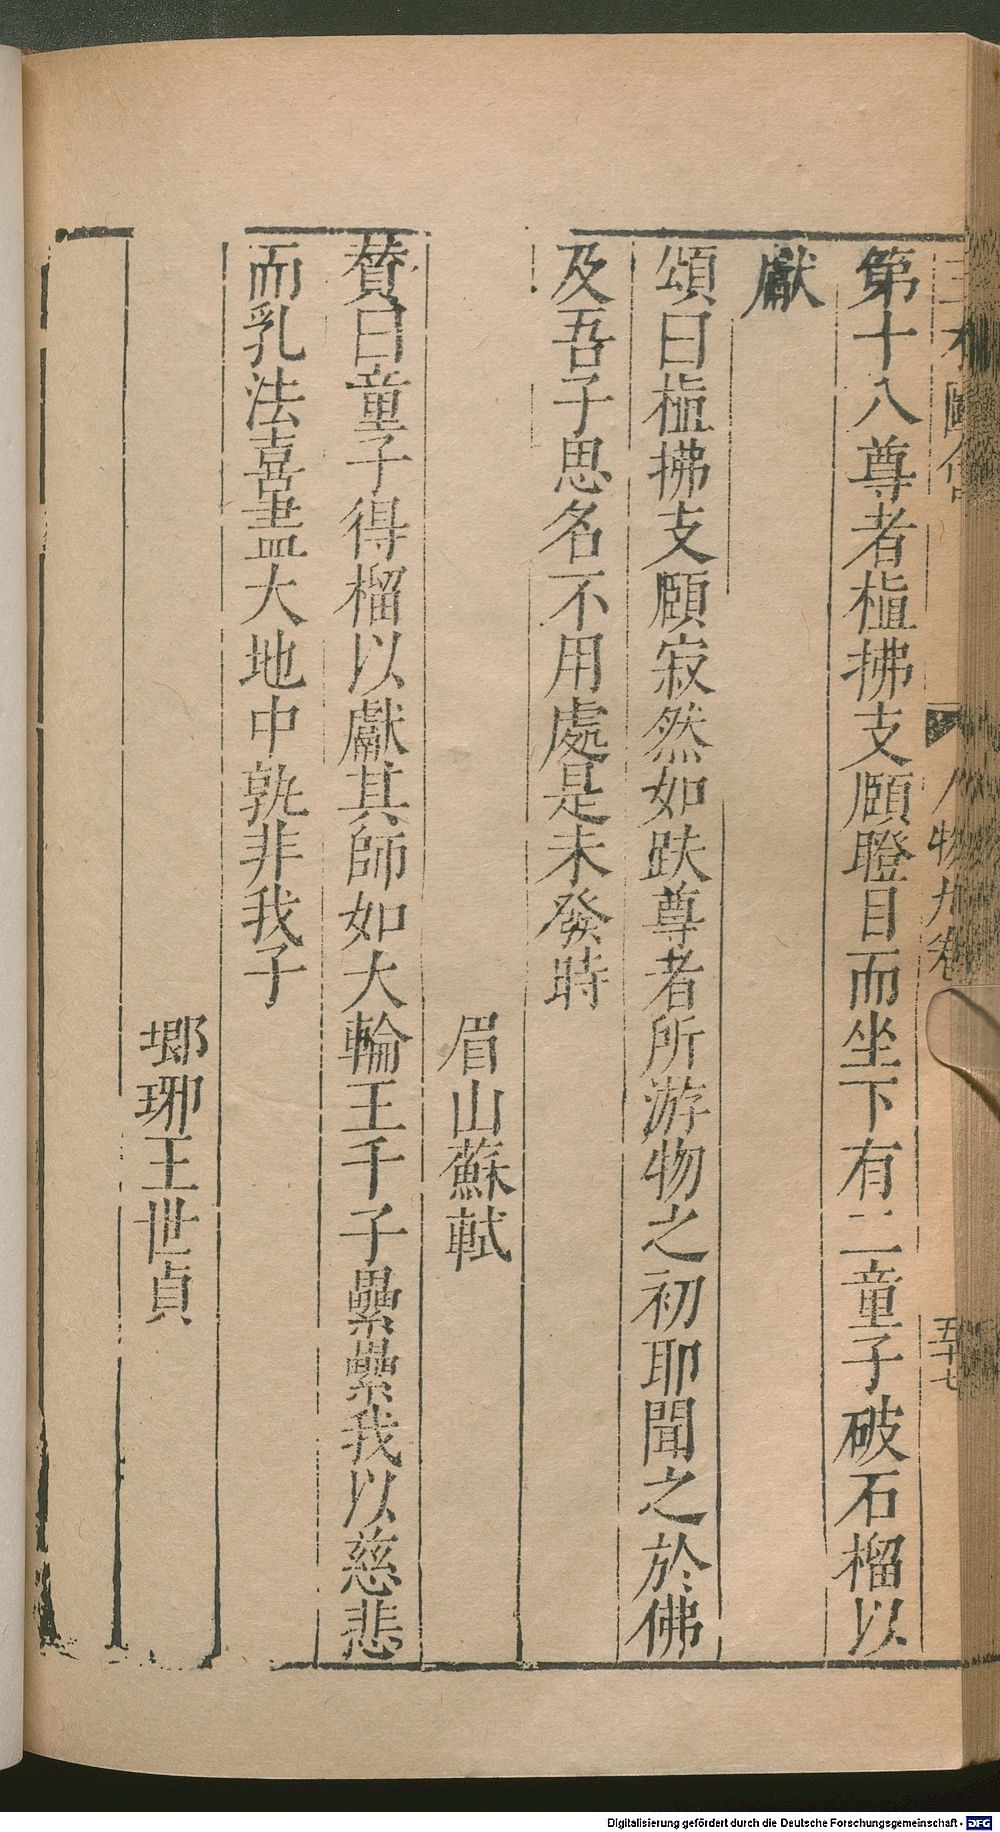 三才圖會 人物九卷 五十七
第十八尊者植拂支頤瞪目而坐下有二童子破石榴以
獻
頌曰植拂支頤寂然如趺尊者所游物之初耶聞之於佛
及吾子思名不用處是未發時
眉山蘇軾
贊曰童子得榴以獻其師如大輪王千子纍纍我以慈悲
而乳法喜盡大地中孰非我子
瑯琊王世貞
Digitalisierung gefördert durch die Deutsche Forschungsgemeinschaft - DFG